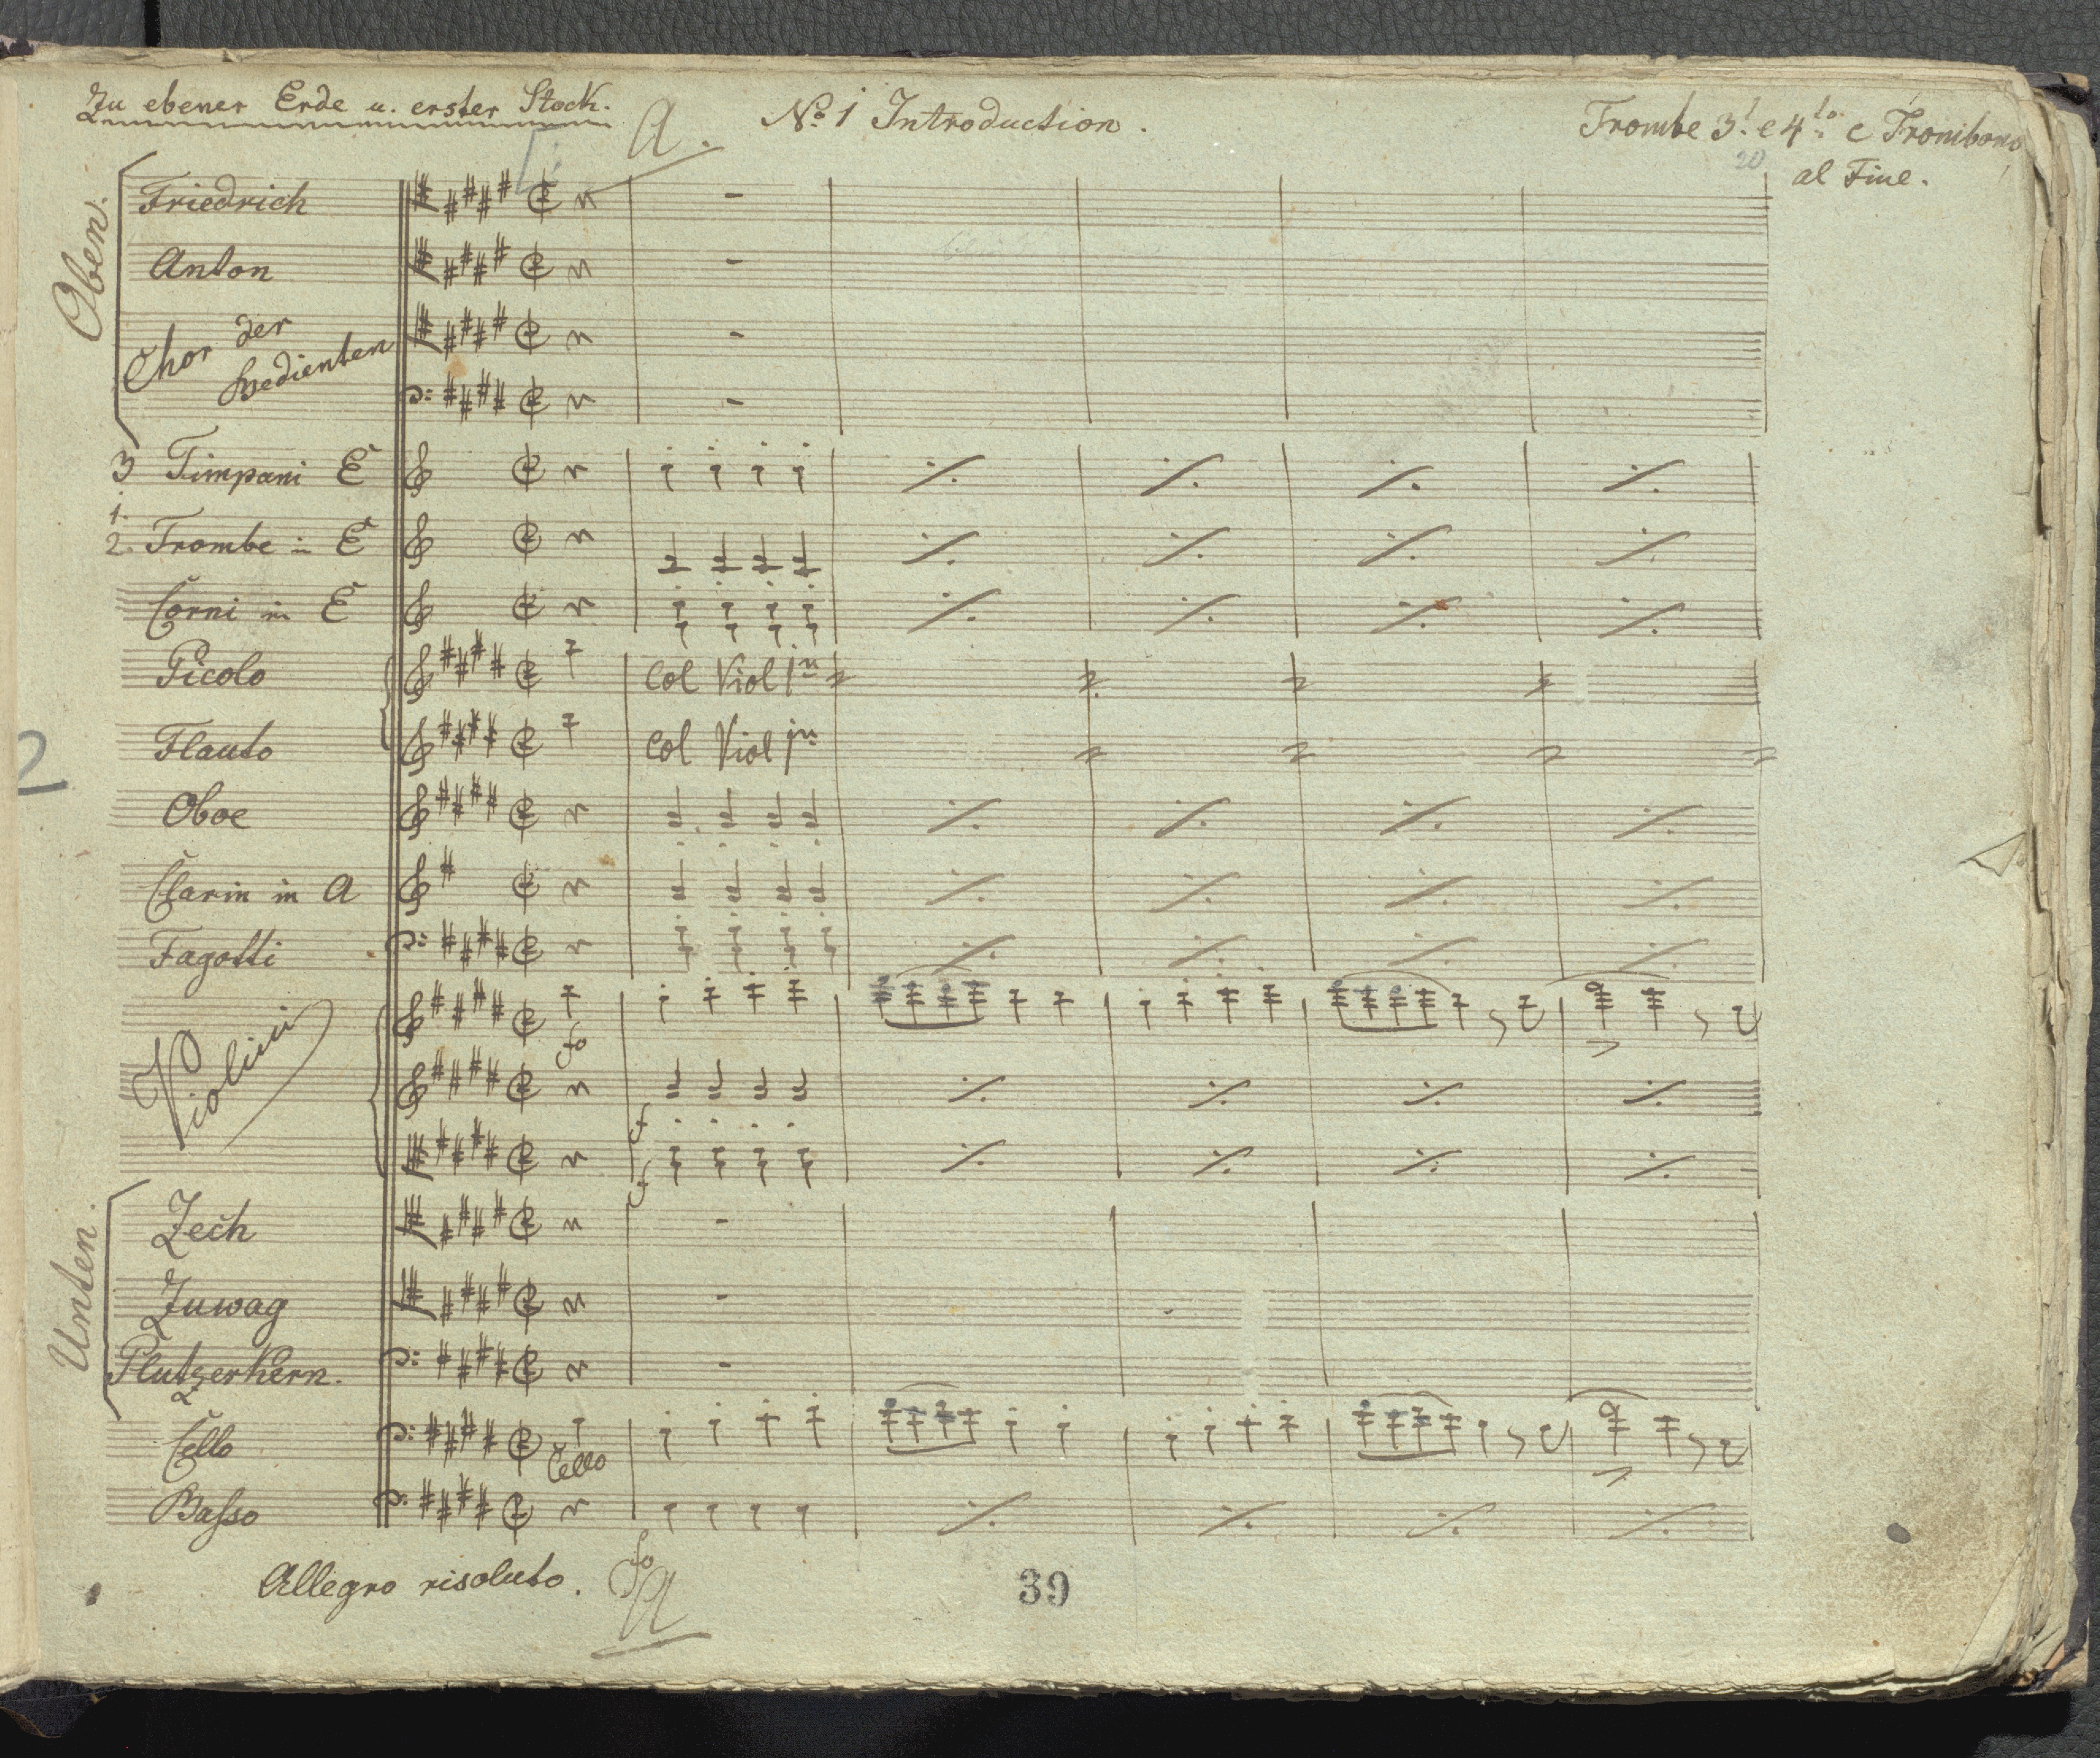 Zu ebener Erde u. erster Stock.
A.
No 1 Introduction.
Trombe 3t. e 4to. e Trombono
20
al Fine.
Oben.
Friedrich
Anton
Chor der
Bedienten
3 Timpani E
1.
2. Trombe in E
Corni in E
Picolo
Col Viol 1mo
Flauto
Col Viol 1mo
2
Oboe
Clarin in A
Fagotti
Violini
fo
f
f
Unten.
Zech
Zuwag
Plutzerkern.
Cello
Cello
Basso
fo
Allegro risoluto.
A
39